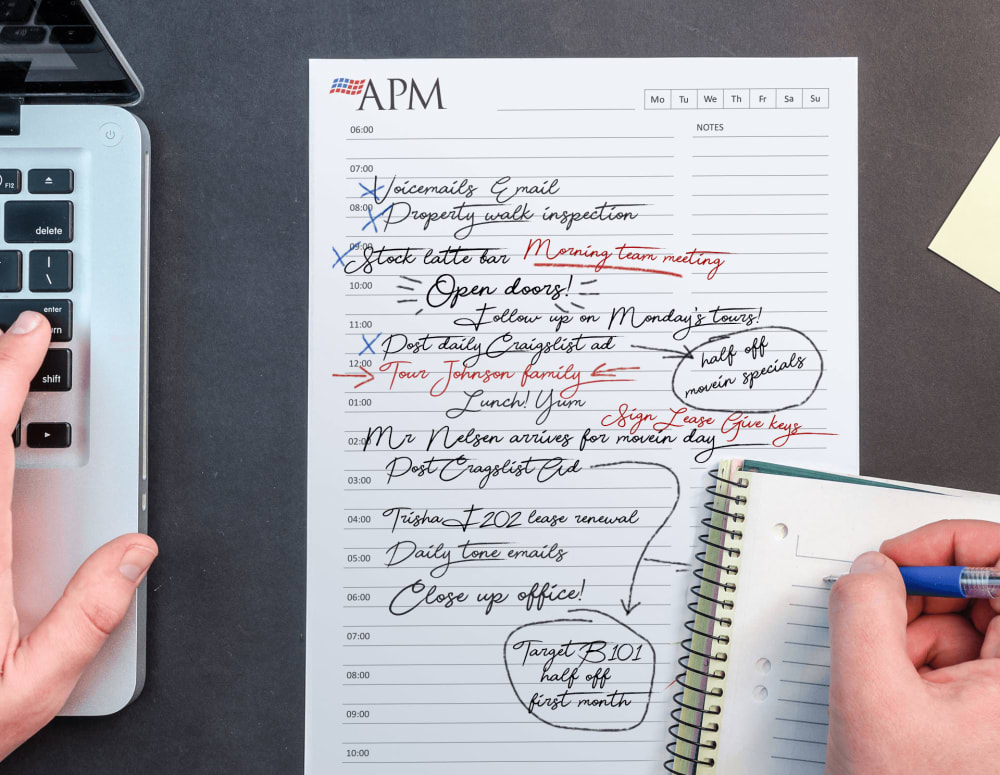 APM
Mo Tu We Th Fr Sa Su
06:00
NOTES
07:00
Voicemails Email
08:00
Property walk inspection
09:00
Stock latte bar Morning team meeting
10:00
Open doors!
Follow up on Monday's tours!
11:00
Post daily Craigslist ad
half off
movein specials
12:00
Tour Johnson family
01:00
Lunch! Yum
Sign Lease Give keys
02:00
Mr Nelsen arrives for movein day
Post Cragslist Ad
03:00
04:00
Trisha I202 lease renewal
05:00
Daily tone emails
06:00
Close up office!
07:00
Target B101
half off
first month
08:00
09:00
10:00
F12
delete
|
\
enter
shift